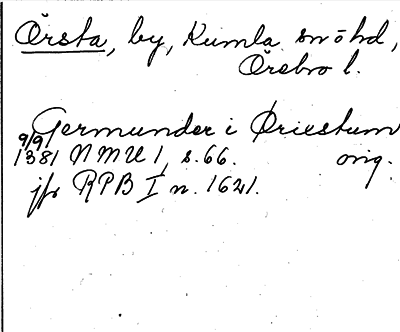 Örsta, by, Kumla sn o hd,
Örebro l.
Germunder i Øriestum
9/9
1381 NMU 1, s. 66. orig.
jfr RPB I n. 1621.